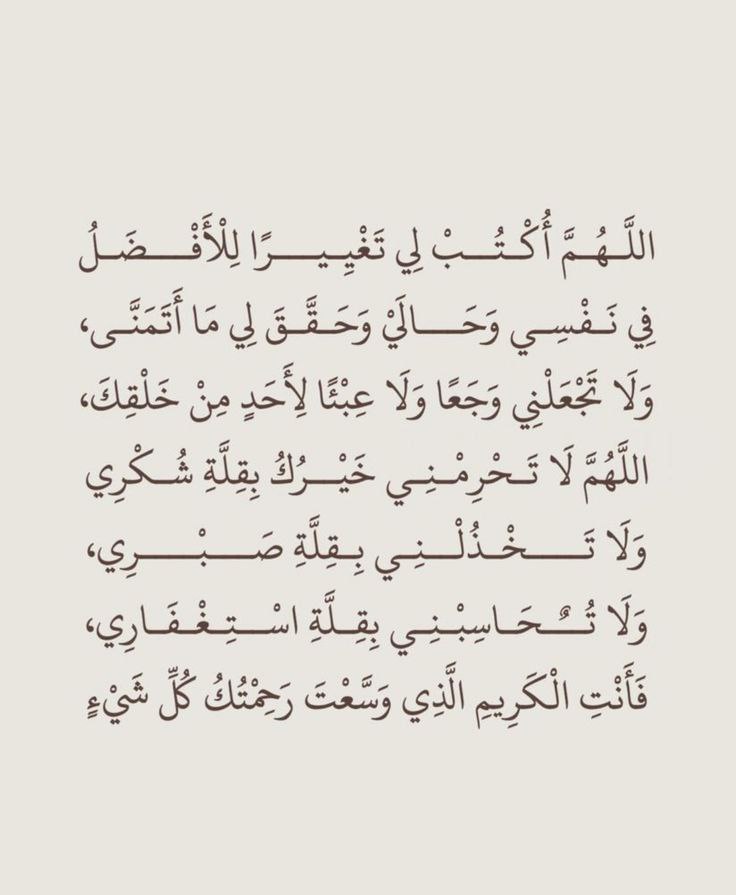 اللَّهُمَّ أُكْتُبْ لِي تَغْيِيرًا لِلْأَفْضَلُ
فِي نَفْسِي وَحَالَيْ وَحَقَّقَ لِي مَا أَتَمَنَّى،
وَلَا تَجْعَلْنِي وَجَعًا وَلَا عِبْئًا لِأَحَدٍ مِنْ خَلْقِكَ،
اللهُمَّ لَا تَحْرِمْنِي خَيْرُكُ بِقِلَّةِ شُكْرِي
وَلَا تَخْذُلْنِي بِقِلَّةِ صَبْرِي،
وَلَا تُحَاسِبْنِي بِقِلَّةِ اسْتِغْفَارِي،
فَأَنْتِ الْكَرِيمِ الَّذِي وَسَّعْتَ رَحِمْتُكُ كُلِّ شَيْءٍ